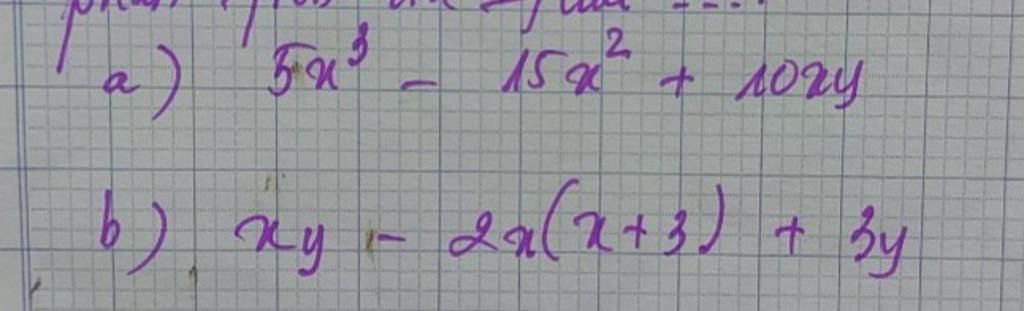 a) 5x³ - 15x² + 10xy
b) xy - 2x(x+3) + 3y